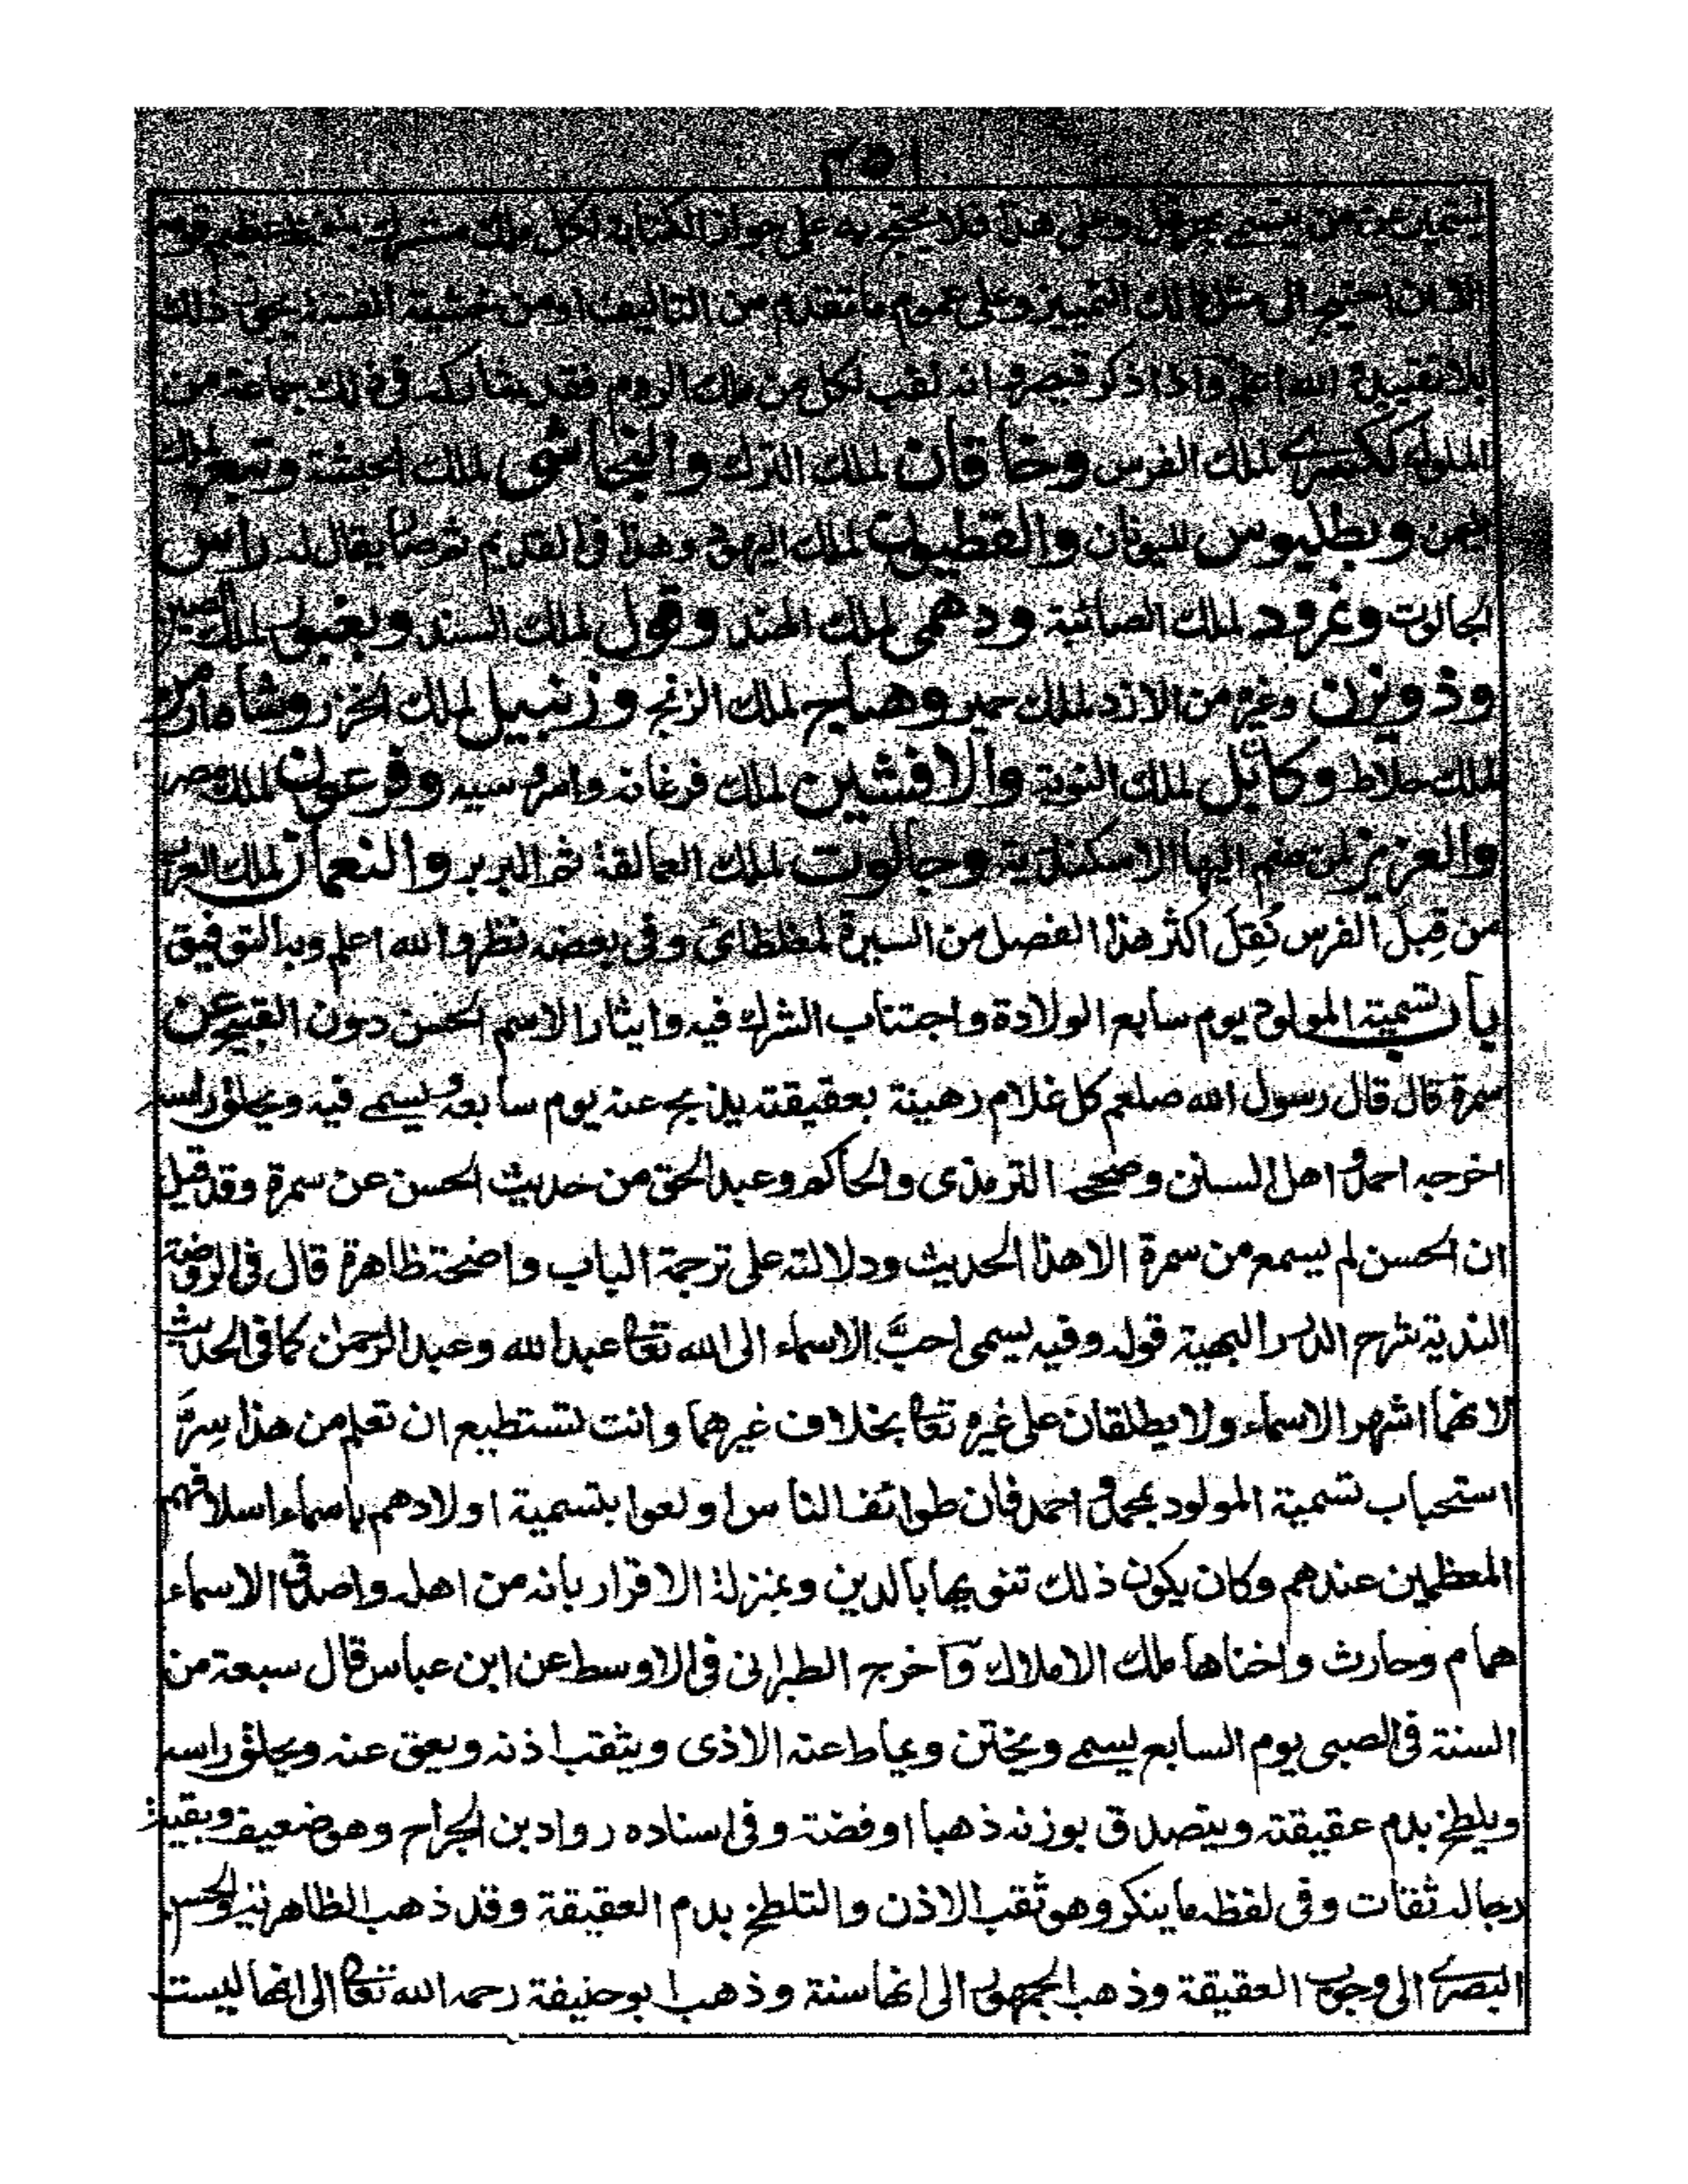 ليتميز عمن يتسمى بهرقل وعلى هذا فلا يحتج به على جواز الكتابة لكل ملك مشرك بلفظ عظيم قومه
الا ان احتيج الى مثل ذلك التمييز وعلى عموم ما تقدم من التاليف او من خشية الفتنة يجوز ذلك
بلا تقييد والله اعلم واذا ذكر قيصر وانه لقب لكل من ملك الروم فقد يشاركه في ذلك جماعة من
الملوك ككسرے لملك الفرس وخاقان لملك الترك والنجاشى لملك الحبشة وتبع لملك
اليمن وبطليوس لليونان والقطيون لملك اليهود وهذا فى القديم ثم صار يقال له راس
الجالوت ونمرود لملك الصائبة ودهمى لملك الهند وقول لملك السند ويعبور لملك الصين
وذو يزن وغيره من الازد لملك حمير وهياج لملك الزنج وزنبيل لملك الخزر وشاه ارمن
لملك خلاط وكائل لملك النوبة والافشين لملك فرغانه واسروسيه وفرعون لملك مصر
والعزيز لمن ضم اليها الاسكندرية وجالوت لملك العمالقة ثم البربر والنعمان لملك العرب
من قِبَل الفرس نُقِلَ اكثر هذا الفصل من السيرة لمغلطائى وفى بعضه نظر والله اعلم وبه التوفيق
باب تسمية المولود يوم سابع الولادة واجتناب الشرك فيه وايثار الاسم الحسن دون القبيح عن
سمرة قال قال رسول الله صلعم كل غلام رهينة بعقيقته يذبح عنه يوم سابعه ويسمے فيه ويحلق راسه
اخرجه احمد واهل السنن وصححه الترمذى والحاكم وعبد الحق من حديث الحسن عن سمرة وقد قيل
ان الحسن لم يسمع من سمرة الا هذا الحديث ودلالته على ترجمة الباب واضحة ظاهرة قال فى الروضة
الندية شرح الدرر البهية قوله وفيه يسمى احبَّ الاسماء الى الله تعا عبد الله وعبد الرحمٰن كما فى الحديث
لانهما اشهر الاسماء ولا يطلقان على غيره تعا بخلاف غيرهما وانت تستطيع ان تعلم من هذا سِرَّ
استحباب تسمية المولود بمحمد واحمد فان طوائف الناس اولعوا بتسمية اولادهم باسماء اسلافهم
المعظمين عندهم وكان يكون ذلك تنويها بالدين وبمنزلة الاقرار بانه من اهله واصدق الاسماء
همام وحارث واخناها ملك الاملاك وآخرج الطبرانى فى الاوسط عن ابن عباس قال سبعة من
السنة فى الصبى يوم السابع يسمے ويختن ويماط عنه الاذى ويثقب اذنه ويعق عنه ويحلق راسه
ويلطخ بدم عقيقته ويتصدق بوزنه ذهبا او فضة وفى اسناده رواد بن الجراح وهو ضعيف وبقية
رجاله ثقات وفى لفظه ما ينكر وهو ثقب الاذن والتلطخ بدم العقيقة وقد ذهب الظاهرية والحسن
البصرے الى وجوب العقيقة وذهب الجمهور الى انها سنة وذهب ابو حنيفة رحمه الله تعا الى انها ليست